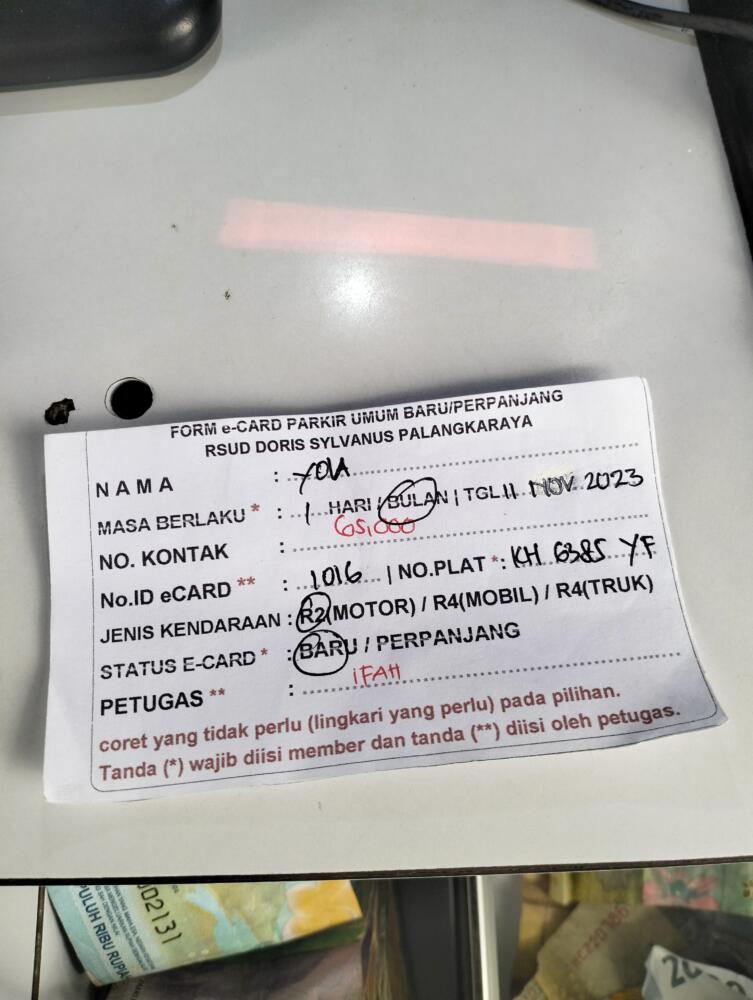 FORM e-CARD PARKIR UMUM BARU/PERPANJANG
RSUD DORIS SYLVANUS PALANGKARAYA
NAMA : YOLA
MASA BERLAKU * : 1 HARI / BULAN | TGL 11 NOV 2023
65,000
NO. KONTAK :
No.ID eCARD ** : 1016 | NO.PLAT *: KH 6385 YF
JENIS KENDARAAN : R2(MOTOR) / R4(MOBIL) / R4(TRUK)
STATUS E-CARD * : BARU / PERPANJANG
PETUGAS ** : IFAH
coret yang tidak perlu (lingkari yang perlu) pada pilihan.
Tanda (*) wajib diisi member dan tanda (**) diisi oleh petugas.
002131
PULUH RIBU RUPIA